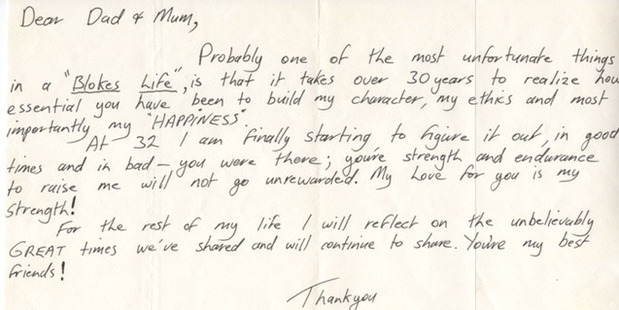 Dear Dad & Mum,
Probably one of the most unfortunate things
in a "Blokes Life", is that it takes over 30 years to realize how
essential you have been to build my character, my ethics and most
importantly my "HAPPINESS".
At 32 I am finally starting to figure it out, in good
times and in bad – you were there; you're strength and endurance
to raise me will not go unrewarded. My Love for you is my
strength!
For the rest of my life I will reflect on the unbelievably
GREAT times we've shared and will continue to share. You're my best
friends!
Thankyou